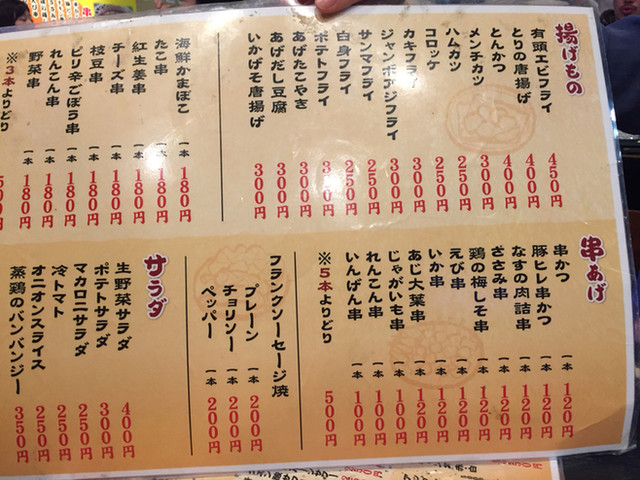 揚げもの
有頭エビフライ 450円
とりの唐揚げ 400円
とんかつ 400円
メンチカツ 300円
ハムカツ 250円
コロッケ 250円
カキフライ 300円
ジャンボアジフライ 300円
サンマフライ 250円
白身フライ 250円
ポテトフライ 300円
あげたこやき 300円
あげだし豆腐 300円
いかげそ唐揚げ 300円
海鮮かまぼこ 一本 180円
たこ串 一本 180円
紅生姜串 一本 180円
チーズ串 一本 180円
枝豆串 一本 180円
ピリ辛ごぼう串 一本 180円
れんこん串 一本 180円
野菜串 一本 180円
※3本よりどり 500円
串あげ
串かつ 一本 120円
豚ヒレ串かつ 一本 120円
なすの肉詰串 一本 120円
ささみ串 一本 120円
鶏の梅しそ串 一本 120円
えび串 一本 120円
いか串 一本 120円
あじ大葉串 一本 120円
じゃがいも串 一本 100円
れんこん串 一本 100円
いんげん串 一本 100円
※5本よりどり 500円
フランクソーセージ焼
プレーン 一本 200円
チョリソー 一本 200円
ペッパー 一本 200円
サラダ
生野菜サラダ 400円
ポテトサラダ 300円
マカロニサラダ 250円
冷トマト 250円
オニオンスライス 250円
蒸鶏のバンバンジー 350円